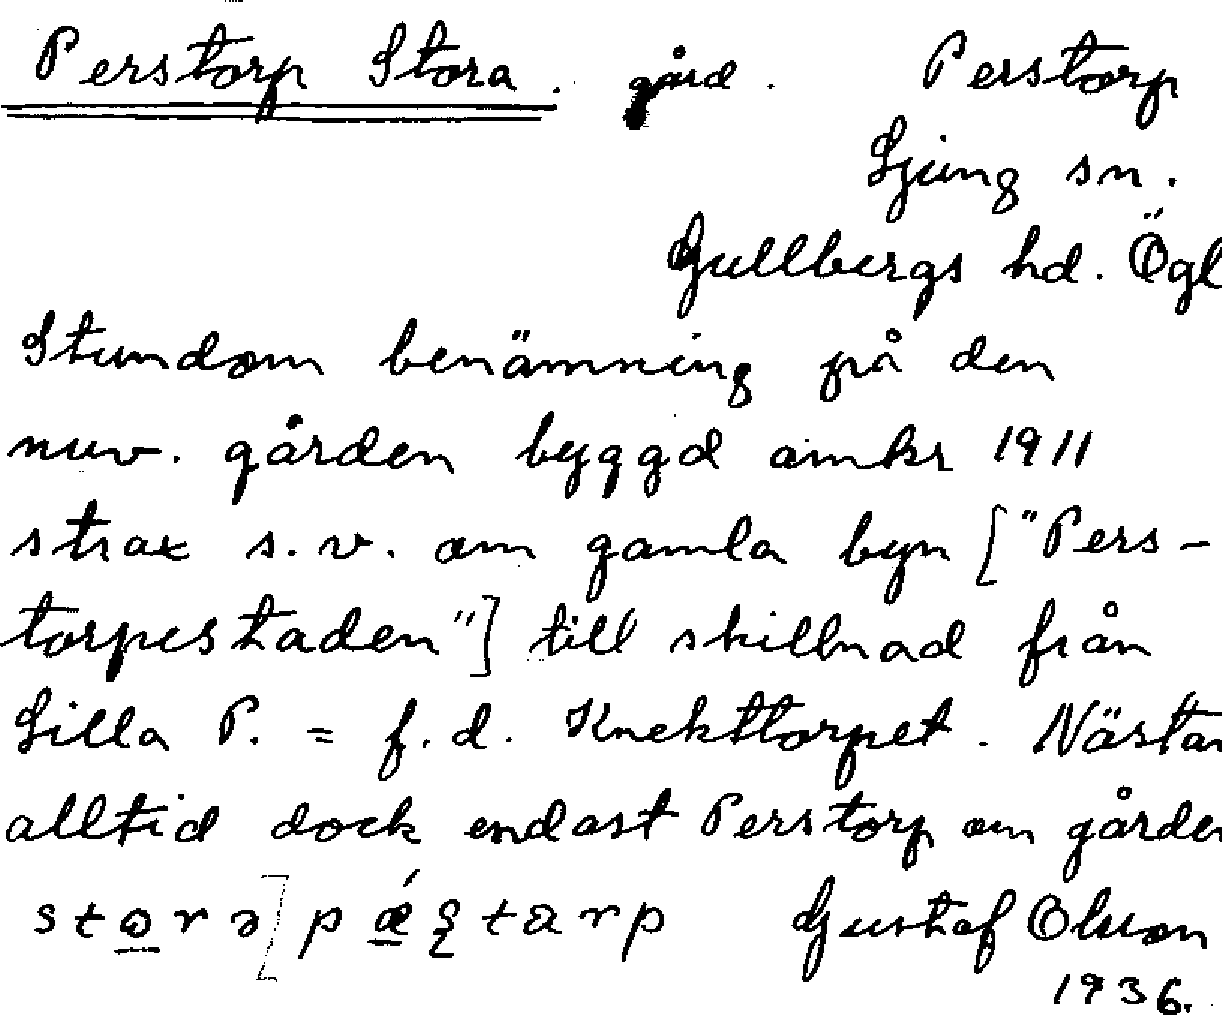 Perstorp Stora. gård. Perstorp
Ljung sn.
Gullbergs hd. Ögl
Stundom benämning på den
nuv. gården byggd omkr 1911
strax s.v. om gamla byn ["Pers-
torpestaden"] till skillnad från
Lilla P. = f.d. Knekttorpet. Nästan
alltid dock endast Perstorp om gården
Gustaf Olsson
1936.